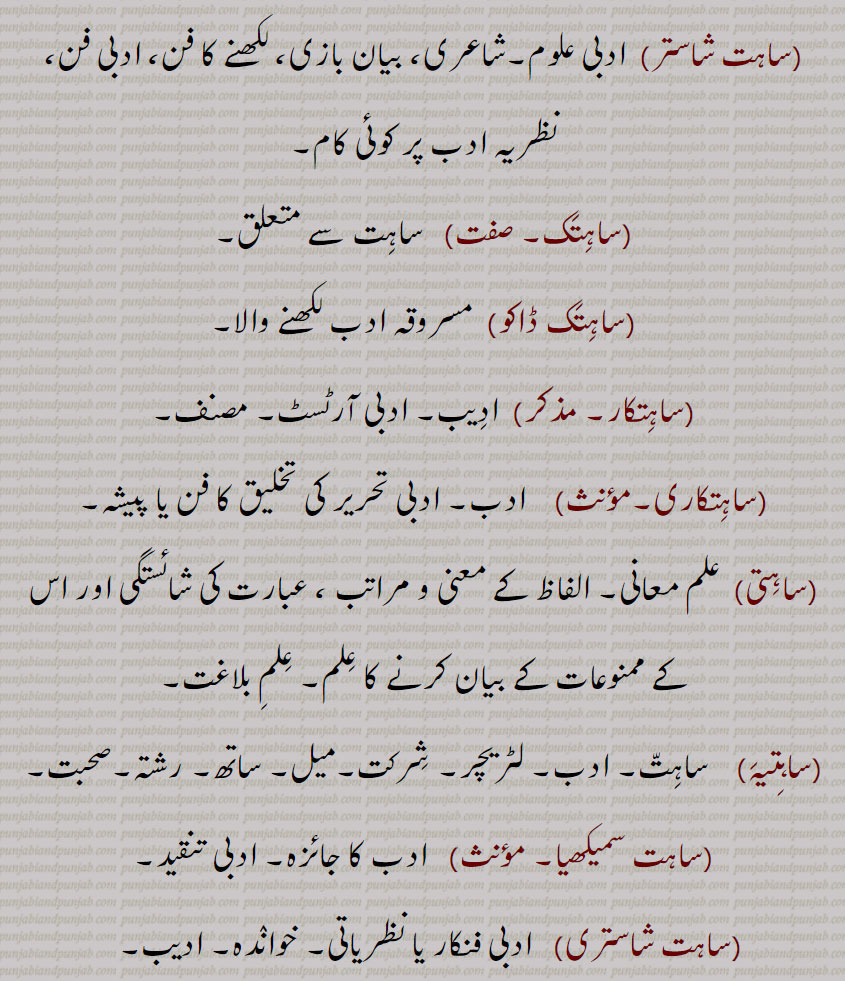 (ساہت شاستر) ادبی علوم۔شاعری، بیان بازی، لکھنے کا فن، ادبی فن،
نظریہ ادب پر کوئی کام۔
(ساہِتَک۔ صفت) ساہِت سے متعلق۔
(ساہِتَک ڈاکو) مسروقہ ادب لکھنے والا۔
(ساہِتکار۔ مذکر) ادِیب۔ ادبی آرٹسٹ۔ مصنف۔
(ساہِتکاری۔مؤنث) ادب۔ ادبی تحریر کی تخلیق کا فن یا پیشہ۔
(ساہِتی) علم معانی۔ الفاظ کے معنی و مراتب ، عبارت کی شائستگی اور اس
کے ممنوعات کے بیان کرنے کا عِلم۔ عِلمِ بلاغت۔
(ساہِتیہَ) ساہِتّ۔ ادب۔ لٹریچر۔ شِرکت۔میل۔ ساتھ۔ رشتہ۔صحبت۔
(ساہت سمیکھیا۔ مؤنث) ادب کا جائزہ۔ ادبی تنقید۔
(ساہت شاستری) ادبی فنکار یا نظریاتی۔ خوانٛدہ۔ ادیب۔
punjabiandpunjab.com